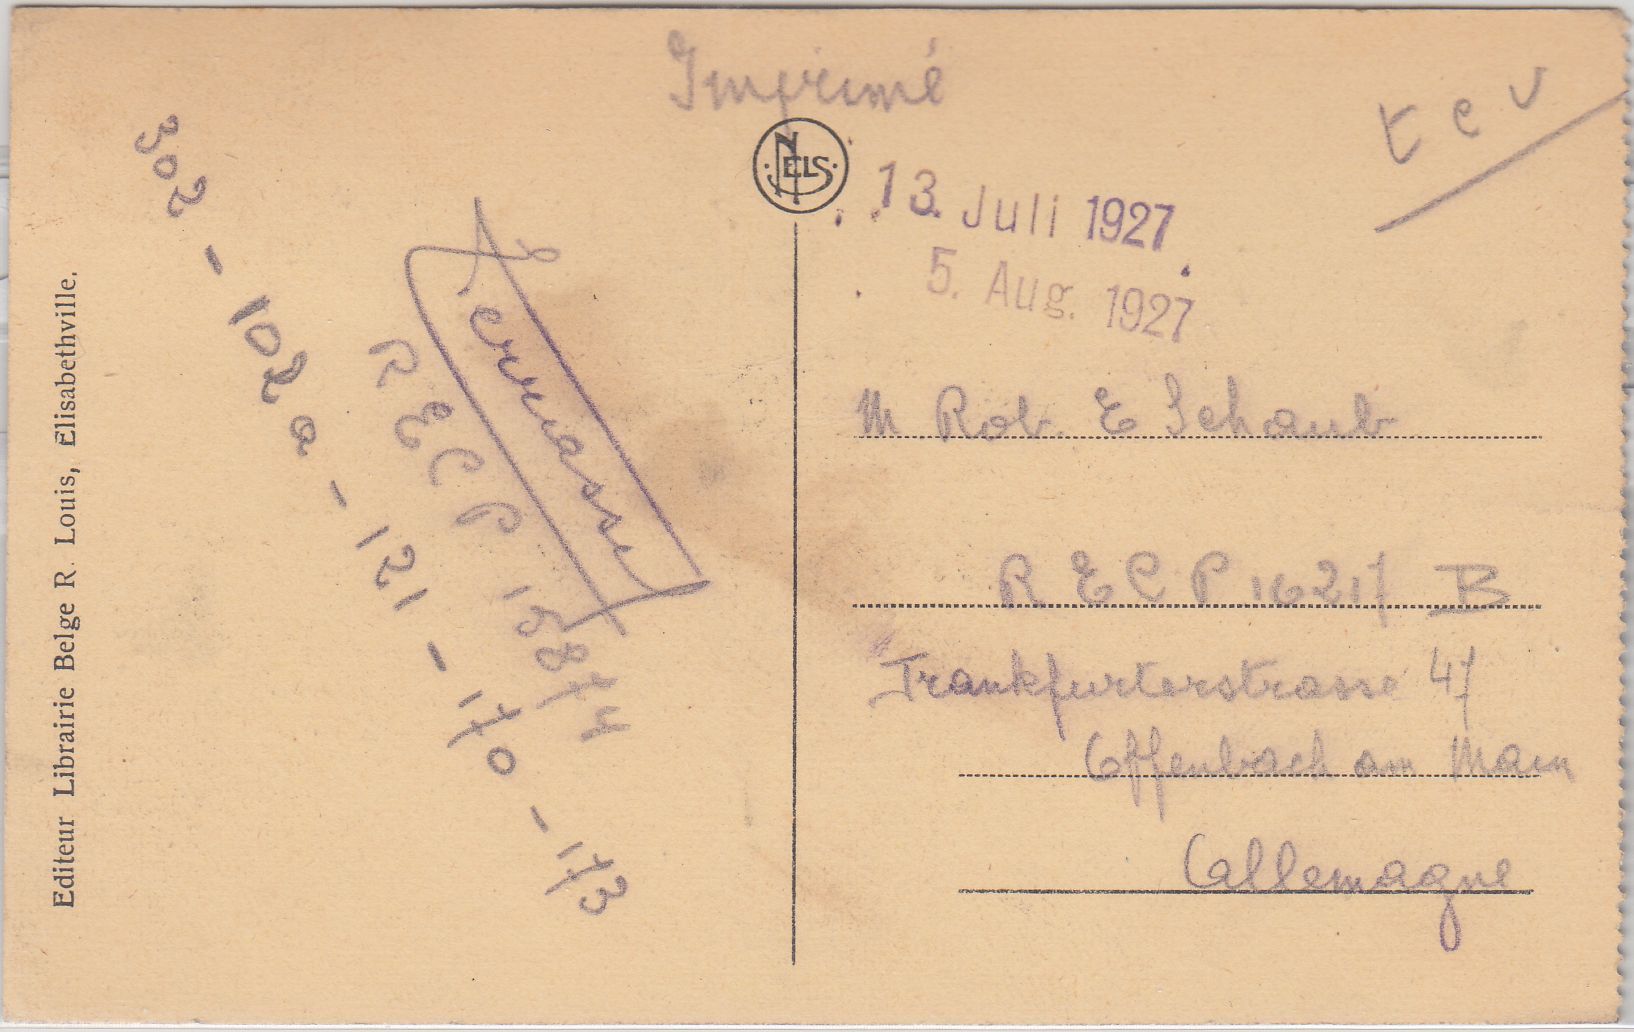 Imprimé
t c v
NELS
13. Juli 1927
5. Aug. 1927
302 - 102a - 121 - 170 - 173
R E C P 15874
M Rob. E Schaub
R E C P 16217 B
Frankfurterstrasse 47
Offenbach am Main
Allemagne
Editeur Librairie Belge R. Louis, Élisabethville.